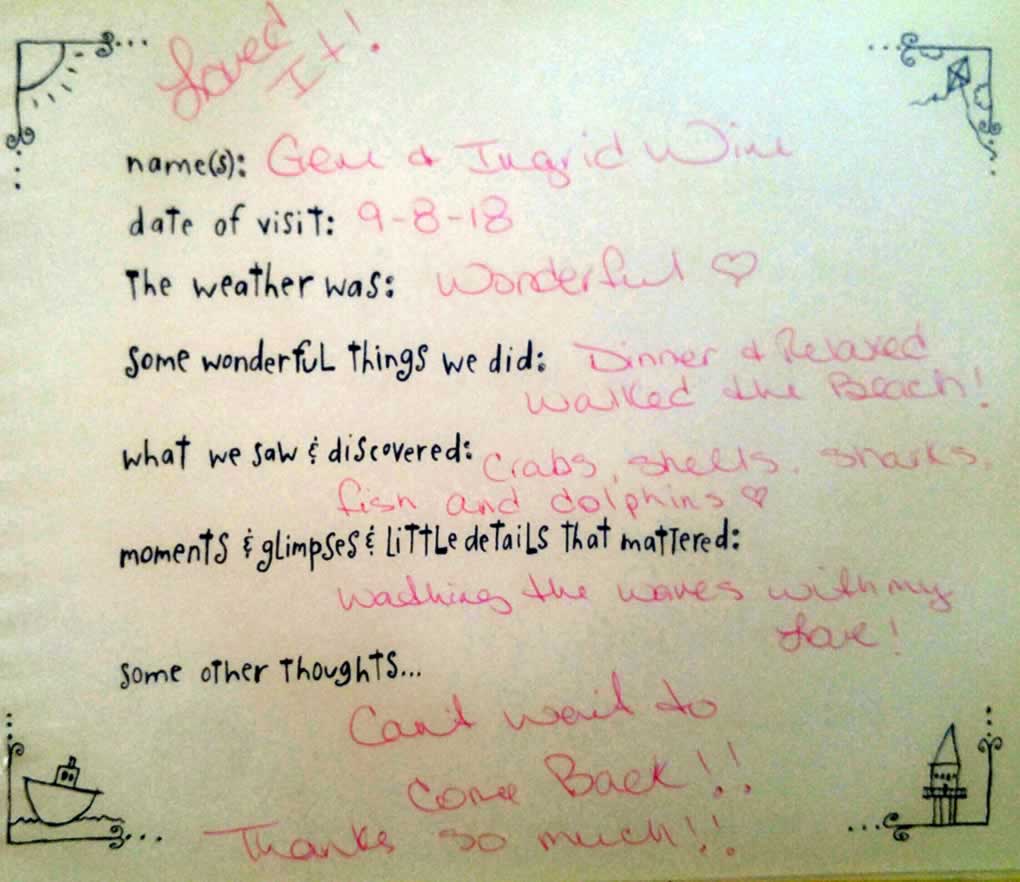 Loved
It!
name(s): Gene & Ingrid Wine
date of visit: 9-8-18
The weather was: Wonderful ♡
some wonderful things we did: Dinner & Relaxed
walked the Beach!
what we saw & discovered: crabs, shells, sharks,
fish and dolphins ♡
moments & glimpses & little details that mattered:
wathing the waves with my
Love!
some other thoughts...
Can't wait to
come Back!!
Thanks so much!!